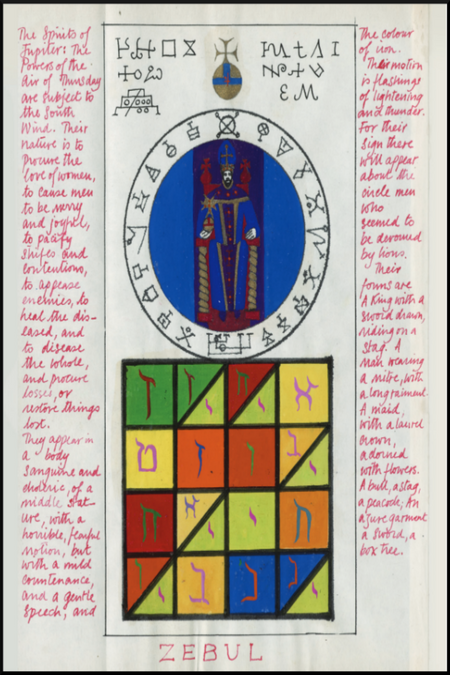 The Spirits of
Jupiter: The
Powers of the
air of Thursday
are subject to
the South
Wind. Their
nature is to
procure the
love of women,
to cause men
to be merry
and joyful,
to pacify
strifes and
contentions,
to appease
enemies, to
heal the dis-
eased, and
to disease
the whole,
and procure
losses, or
restore things
lost.
They appear in
a body
sanguine and
choleric, of a
middle stat-
ure, with a
horrible, fearful
motion, but
with a mild
countenance,
and a gentle
speech, and
The colour
of iron.
Their motion
is flashings
of lightening
and thunder.
For their
sign there
will appear
about the
circle men
who
seemed to
be devoured
by lions.
Their
forms are
A King with a
sword drawn,
riding on a
stag. A
man wearing
a mitre, with
a long raiment
A maid,
with a laurel
crown,
adorned
with flowers.
A bull, a stag,
a peacock; An
azure garment
a sword, a
box tree.
א יה יד ד
יב ו ז ט
ח י יא ה
יג ג ב יו
ZEBUL